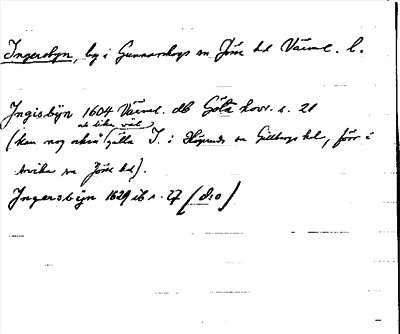 Ingersbyn, by i Gunnarskogs sn Jösse hd Värml. l.
Ingisbÿn 1604 Värml. db Göta hovr. s. 21
(kan nog också lika väl gälla I. i Högeruds sn Gillbergs hd, förr i
Arvika sn Jösse hd).
Ingersbÿn 1629 ib s. 27 (d:o)